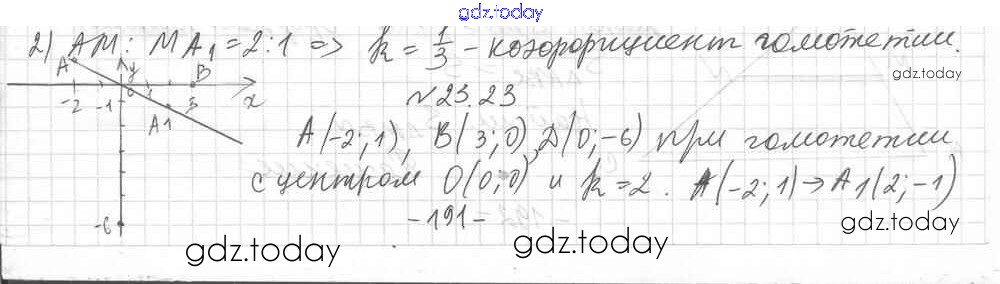 gdz.today
2) AM : MA₁ = 2 : 1 => k = 1/3 - коэффициент гомотетии.
gdz.today
A y B
-2 -1 0 1 3 x
A1
№ 23.23
A(-2; 1), B(3; 0), D(0; -6) при гомотетии
с центром O(0; 0) и k = 2. A(-2; 1) → A₁(2; -1)
-6
-191-
gdz.today gdz.today gdz.today